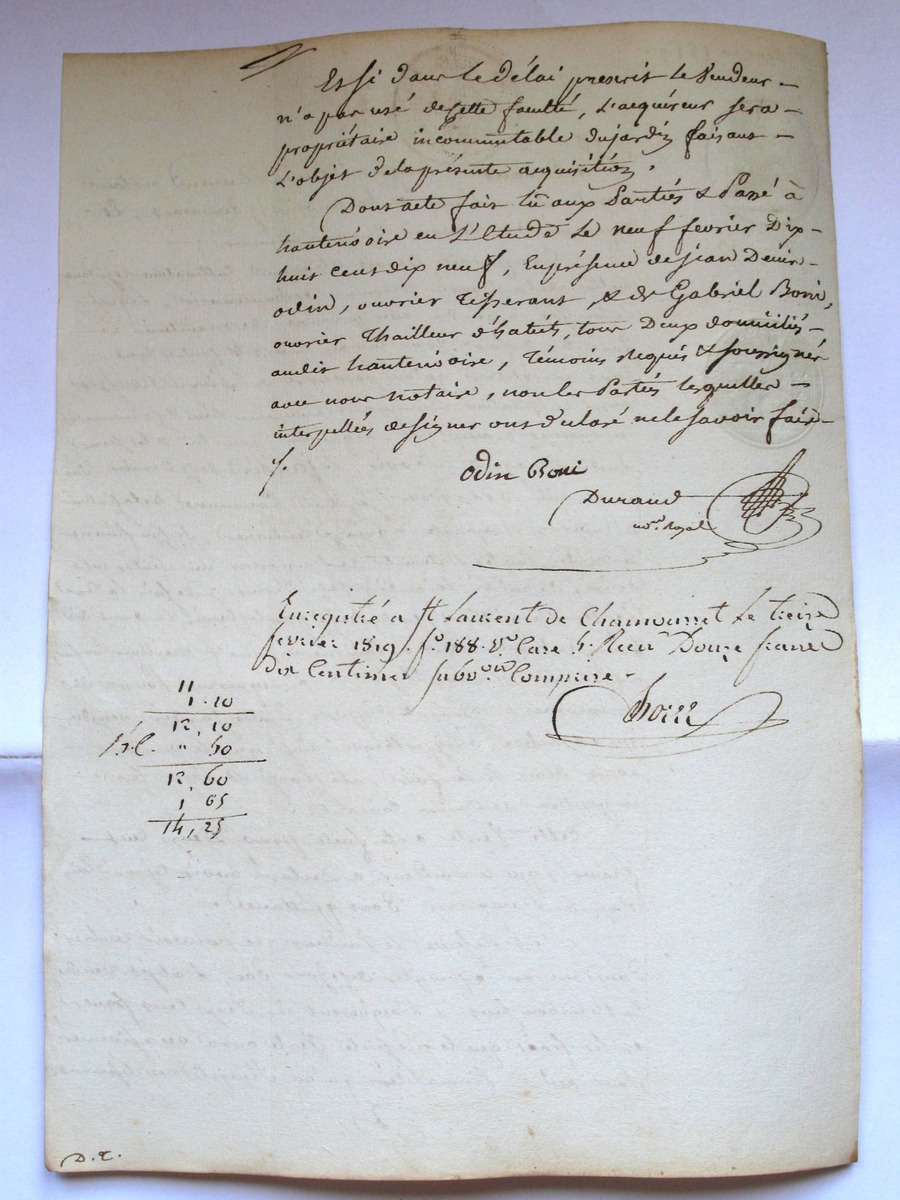 Et si dans le délai prescrit le Vendeur
n'a pas usé de cette faculté, L'acquéreur sera
propriétaire incommutable du jardin faisant
L'objet de la présente acquisition.
Dont acte fait lu aux Parties & Passé à
hauterivoire en L'Etude Le neuf fevrier Dix
huit cent dix neuf, En présence de jean Denis
odin, ouvrier Tisserant, & de Gabriel Boni,
ouvrier Thailleur d'habits, tous Deux domiciliés
audit hauterivoire, Témoins Requis & soussignés
avec nous notaire, non les Parties lesquelles
interpellées de signer ont déclaré ne le savoir faire
/.
Odin Boni
Durand
not.re Royal
Enregistré a St Laurent de Chamousset Le treize
fevrier 1819. fo. 188. vo. Case 5. Recu Douze francs
dix Centimes subv.on Comprise.
11
1.10
12,10
" 60
12,60
1 65
14,25
D.T.